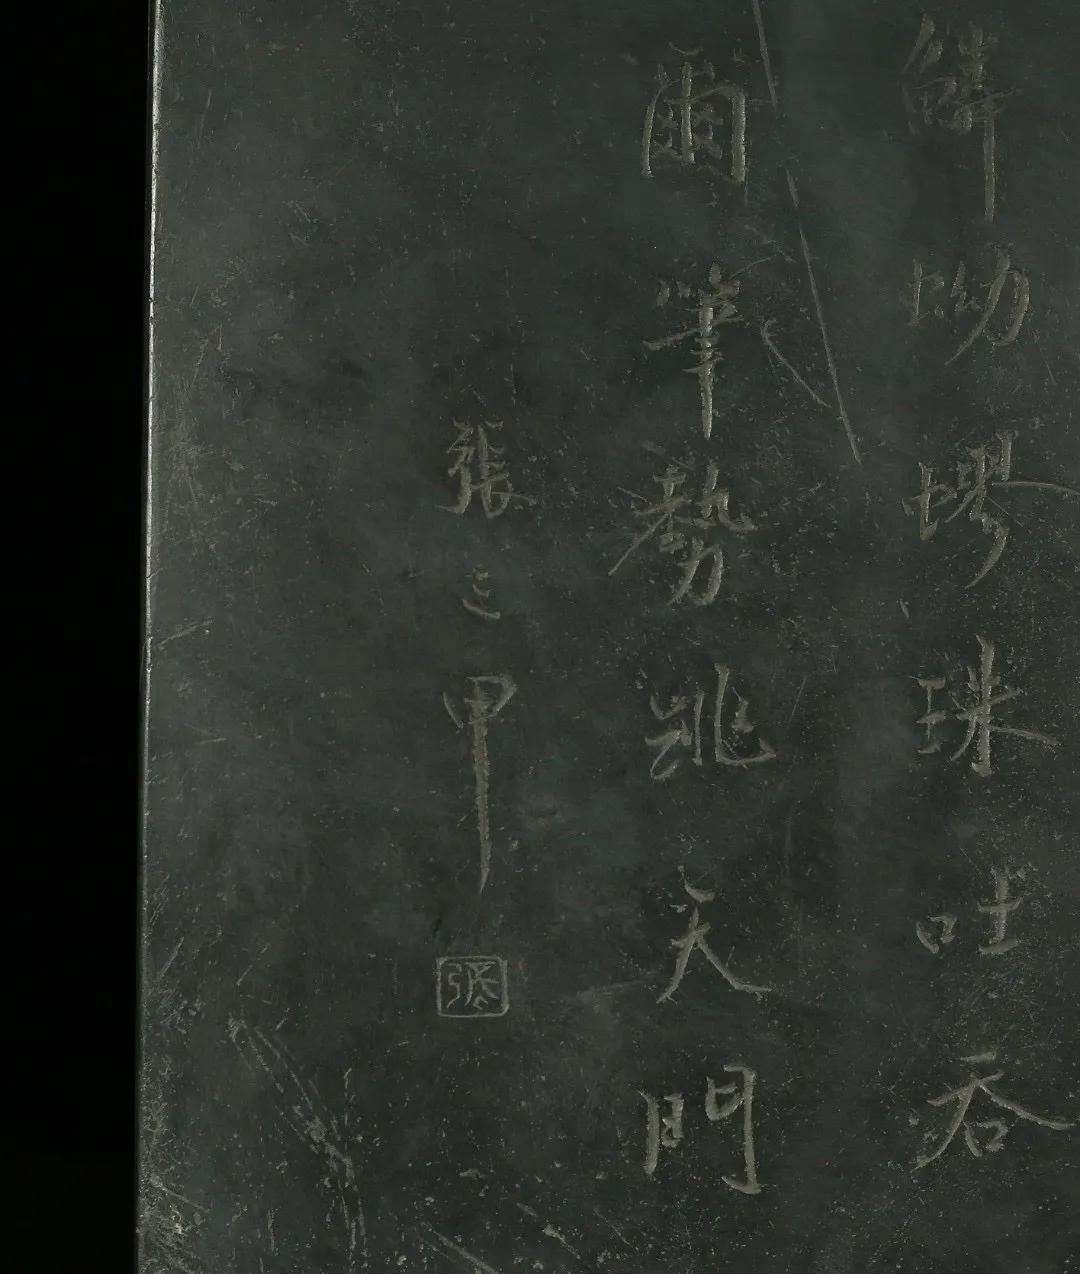 鱗蚴蟉珠吐吞
爾筆勢跳天門
張三甲
張